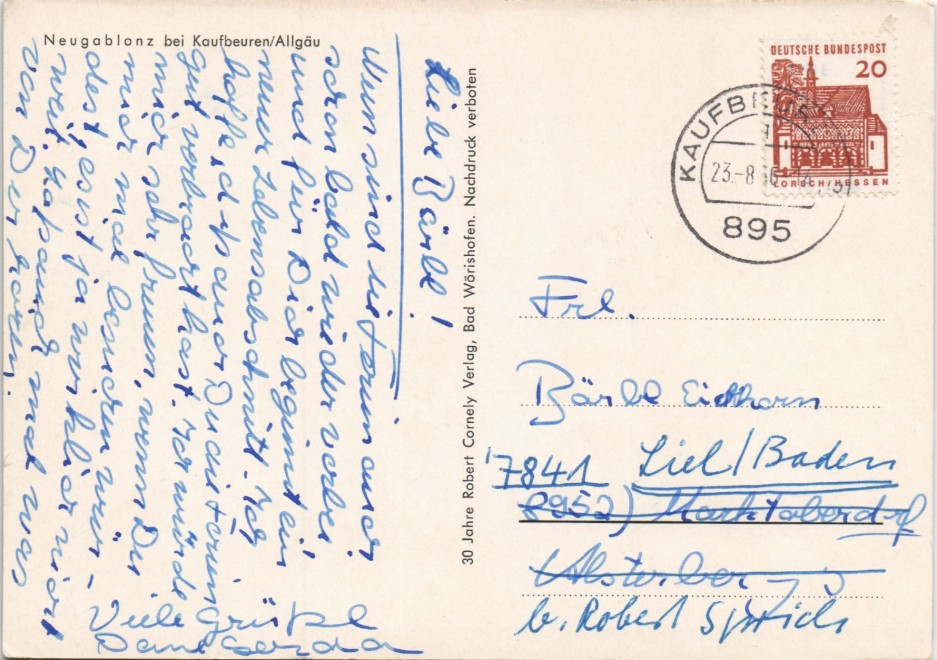 Neugablonz bei Kaufbeuren/Allgäu
Liebe Bärbl!
Nun sind die Ferien auch
schon bald wieder vorbei
und für Dich beginnt ein
neuer Lebensabschnitt. Ich
hoffe, daß auch Du die Ferien
gut verbracht hast. Ich würde
mich sehr freuen, wenn Du
mich mal besuchen wür-
dest, es ist ja wirklich nicht
weit. Laß auch mal was
von Dir hören.
Viele Grüße
Deine Gerda
30 Jahre Robert Cornely Verlag, Bad Wörishofen. Nachdruck verboten
DEUTSCHE BUNDESPOST
20
LORSCH/HESSEN
KAUFBEU
23.-8
895
Frl.
Bärbl Eichhorn
7841 Liel/Baden
8952) Marktoberdorf
b. Robert